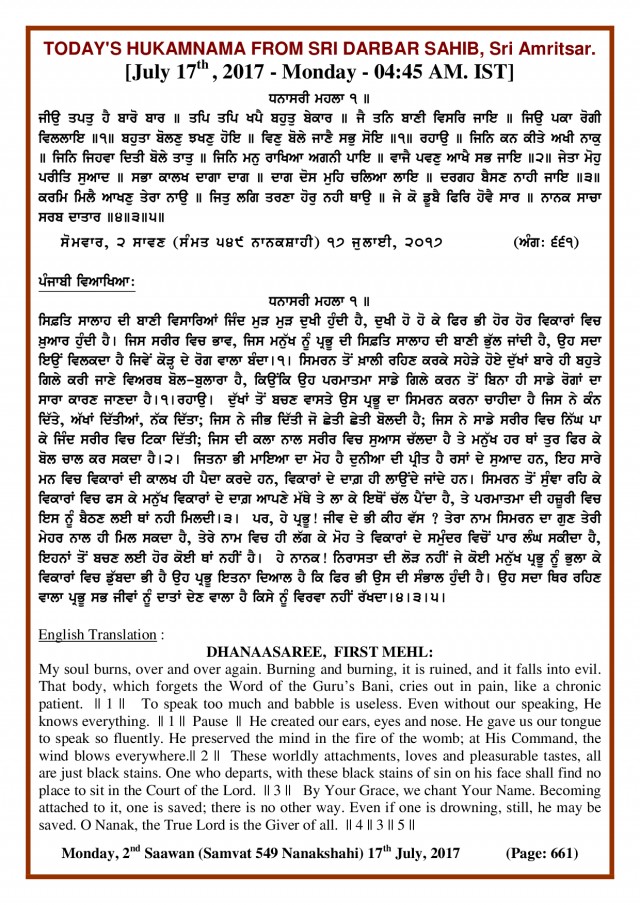 TODAY'S HUKAMNAMA FROM SRI DARBAR SAHIB, Sri Amritsar.
[July 17th , 2017 - Monday - 04:45 AM. IST]
ਧਨਾਸਰੀ ਮਹਲਾ ੧ ॥
ਜੀਉ ਤਪਤੁ ਹੈ ਬਾਰੋ ਬਾਰ ॥ ਤਪਿ ਤਪਿ ਖਪੈ ਬਹੁਤੁ ਬੇਕਾਰ ॥ ਜੈ ਤਨਿ ਬਾਣੀ ਵਿਸਰਿ ਜਾਇ ॥ ਜਿਉ ਪਕਾ ਰੋਗੀ
ਵਿਲਲਾਇ ॥੧॥ ਬਹੁਤਾ ਬੋਲਣੁ ਝਖਣੁ ਹੋਇ ॥ ਵਿਣੁ ਬੋਲੇ ਜਾਣੈ ਸਭੁ ਸੋਇ ॥੧॥ ਰਹਾਉ ॥ ਜਿਨਿ ਕਨ ਕੀਤੇ ਅਖੀ ਨਾਕੁ
॥ ਜਿਨਿ ਜਿਹਵਾ ਦਿਤੀ ਬੋਲੇ ਤਾਤੁ ॥ ਜਿਨਿ ਮਨੁ ਰਾਖਿਆ ਅਗਨੀ ਪਾਇ ॥ ਵਾਜੈ ਪਵਣੁ ਆਖੈ ਸਭ ਜਾਇ ॥੨॥ ਜੇਤਾ ਮੋਹੁ
ਪਰੀਤਿ ਸੁਆਦ ॥ ਸਭਾ ਕਾਲਖ ਦਾਗਾ ਦਾਗ ॥ ਦਾਗ ਦੋਸ ਮੁਹਿ ਚਲਿਆ ਲਾਇ ॥ ਦਰਗਹ ਬੈਸਣ ਨਾਹੀ ਜਾਇ ॥੩॥
ਕਰਮਿ ਮਿਲੈ ਆਖਣੁ ਤੇਰਾ ਨਾਉ ॥ ਜਿਤੁ ਲਗਿ ਤਰਣਾ ਹੋਰੁ ਨਹੀ ਥਾਉ ॥ ਜੇ ਕੋ ਡੂਬੈ ਫਿਰਿ ਹੋਵੈ ਸਾਰ ॥ ਨਾਨਕ ਸਾਚਾ
ਸਰਬ ਦਾਤਾਰ ॥੪॥੩॥੫॥
ਸੋਮਵਾਰ, ੨ ਸਾਵਣ (ਸੰਮਤ ੫੪੯ ਨਾਨਕਸ਼ਾਹੀ) ੧੭ ਜੁਲਾਈ, ੨੦੧੭ (ਅੰਗ: ੬੬੧)
ਪੰਜਾਬੀ ਵਿਆਖਿਆ:
ਧਨਾਸਰੀ ਮਹਲਾ ੧ ॥
ਸਿਫ਼ਤਿ ਸਾਲਾਹ ਦੀ ਬਾਣੀ ਵਿਸਾਰਿਆਂ ਜਿੰਦ ਮੁੜ ਮੁੜ ਦੁਖੀ ਹੁੰਦੀ ਹੈ, ਦੁਖੀ ਹੋ ਹੋ ਕੇ ਫਿਰ ਭੀ ਹੋਰ ਹੋਰ ਵਿਕਾਰਾਂ ਵਿਚ
ਖ਼ੁਆਰ ਹੁੰਦੀ ਹੈ। ਜਿਸ ਸਰੀਰ ਵਿਚ ਭਾਵ, ਜਿਸ ਮਨੁੱਖ ਨੂੰ ਪ੍ਰਭੂ ਦੀ ਸਿਫ਼ਤਿ ਸਾਲਾਹ ਦੀ ਬਾਣੀ ਭੁੱਲ ਜਾਂਦੀ ਹੈ, ਉਹ ਸਦਾ
ਇਉਂ ਵਿਲਕਦਾ ਹੈ ਜਿਵੇਂ ਕੋੜ੍ਹ ਦੇ ਰੋਗ ਵਾਲਾ ਬੰਦਾ।੧। ਸਿਮਰਨ ਤੋਂ ਖ਼ਾਲੀ ਰਹਿਣ ਕਰਕੇ ਸਹੇੜੇ ਹੋਏ ਦੁੱਖਾਂ ਬਾਰੇ ਹੀ ਬਹੁਤੇ
ਗਿਲੇ ਕਰੀ ਜਾਣੇ ਵਿਅਰਥ ਬੋਲ-ਬੁਲਾਰਾ ਹੈ, ਕਿਉਂਕਿ ਉਹ ਪਰਮਾਤਮਾ ਸਾਡੇ ਗਿਲੇ ਕਰਨ ਤੋਂ ਬਿਨਾ ਹੀ ਸਾਡੇ ਰੋਗਾਂ ਦਾ
ਸਾਰਾ ਕਾਰਣ ਜਾਣਦਾ ਹੈ।੧।ਰਹਾਉ। ਦੁੱਖਾਂ ਤੋਂ ਬਚਣ ਵਾਸਤੇ ਉਸ ਪ੍ਰਭੂ ਦਾ ਸਿਮਰਨ ਕਰਨਾ ਚਾਹੀਦਾ ਹੈ ਜਿਸ ਨੇ ਕੰਨ
ਦਿੱਤੇ, ਅੱਖਾਂ ਦਿੱਤੀਆਂ, ਨੱਕ ਦਿੱਤਾ; ਜਿਸ ਨੇ ਜੀਭ ਦਿੱਤੀ ਜੋ ਛੇਤੀ ਛੇਤੀ ਬੋਲਦੀ ਹੈ; ਜਿਸ ਨੇ ਸਾਡੇ ਸਰੀਰ ਵਿਚ ਨਿੱਘ ਪਾ
ਕੇ ਜਿੰਦ ਸਰੀਰ ਵਿਚ ਟਿਕਾ ਦਿੱਤੀ; ਜਿਸ ਦੀ ਕਲਾ ਨਾਲ ਸਰੀਰ ਵਿਚ ਸੁਆਸ ਚੱਲਦਾ ਹੈ ਤੇ ਮਨੁੱਖ ਹਰ ਥਾਂ ਤੁਰ ਫਿਰ ਕੇ
ਬੋਲ ਚਾਲ ਕਰ ਸਕਦਾ ਹੈ।੨। ਜਿਤਨਾ ਭੀ ਮਾਇਆ ਦਾ ਮੋਹ ਹੈ ਦੁਨੀਆ ਦੀ ਪ੍ਰੀਤ ਹੈ ਰਸਾਂ ਦੇ ਸੁਆਦ ਹਨ, ਇਹ ਸਾਰੇ
ਮਨ ਵਿਚ ਵਿਕਾਰਾਂ ਦੀ ਕਾਲਖ ਹੀ ਪੈਦਾ ਕਰਦੇ ਹਨ, ਵਿਕਾਰਾਂ ਦੇ ਦਾਗ਼ ਹੀ ਲਾਉਂਦੇ ਜਾਂਦੇ ਹਨ। ਸਿਮਰਨ ਤੋਂ ਸੁੰਞਾ ਰਹਿ ਕੇ
ਵਿਕਾਰਾਂ ਵਿਚ ਫਸ ਕੇ ਮਨੁੱਖ ਵਿਕਾਰਾਂ ਦੇ ਦਾਗ਼ ਆਪਣੇ ਮੱਥੇ ਤੇ ਲਾ ਕੇ ਇਥੋਂ ਚੱਲ ਪੈਂਦਾ ਹੈ, ਤੇ ਪਰਮਾਤਮਾ ਦੀ ਹਜ਼ੂਰੀ ਵਿਚ
ਇਸ ਨੂੰ ਬੈਠਣ ਲਈ ਥਾਂ ਨਹੀ ਮਿਲਦੀ।੩। ਪਰ, ਹੇ ਪ੍ਰਭੂ! ਜੀਵ ਦੇ ਭੀ ਕੀਹ ਵੱਸ ? ਤੇਰਾ ਨਾਮ ਸਿਮਰਨ ਦਾ ਗੁਣ ਤੇਰੀ
ਮੇਹਰ ਨਾਲ ਹੀ ਮਿਲ ਸਕਦਾ ਹੈ, ਤੇਰੇ ਨਾਮ ਵਿਚ ਹੀ ਲੱਗ ਕੇ ਮੋਹ ਤੇ ਵਿਕਾਰਾਂ ਦੇ ਸਮੁੰਦਰ ਵਿਚੋਂ ਪਾਰ ਲੰਘ ਸਕੀਦਾ ਹੈ,
ਇਹਨਾਂ ਤੋਂ ਬਚਣ ਲਈ ਹੋਰ ਕੋਈ ਥਾਂ ਨਹੀਂ ਹੈ। ਹੇ ਨਾਨਕ! ਨਿਰਾਸਤਾ ਦੀ ਲੋੜ ਨਹੀਂ ਜੇ ਕੋਈ ਮਨੁੱਖ ਪ੍ਰਭੂ ਨੂੰ ਭੁਲਾ ਕੇ
ਵਿਕਾਰਾਂ ਵਿਚ ਡੁੱਬਦਾ ਭੀ ਹੈ ਉਹ ਪ੍ਰਭੂ ਇਤਨਾ ਦਿਆਲ ਹੈ ਕਿ ਫਿਰ ਭੀ ਉਸ ਦੀ ਸੰਭਾਲ ਹੁੰਦੀ ਹੈ। ਉਹ ਸਦਾ ਥਿਰ ਰਹਿਣ
ਵਾਲਾ ਪ੍ਰਭੂ ਸਭ ਜੀਵਾਂ ਨੂੰ ਦਾਤਾਂ ਦੇਣ ਵਾਲਾ ਹੈ ਕਿਸੇ ਨੂੰ ਵਿਰਵਾ ਨਹੀਂ ਰੱਖਦਾ।੪।੩।੫।
English Translation :
DHANAASAREE, FIRST MEHL:
My soul burns, over and over again. Burning and burning, it is ruined, and it falls into evil.
That body, which forgets the Word of the Guru's Bani, cries out in pain, like a chronic
patient. || 1 || To speak too much and babble is useless. Even without our speaking, He
knows everything. || 1 || Pause || He created our ears, eyes and nose. He gave us our tongue
to speak so fluently. He preserved the mind in the fire of the womb; at His Command, the
wind blows everywhere.|| 2 || These worldly attachments, loves and pleasurable tastes, all
are just black stains. One who departs, with these black stains of sin on his face shall find no
place to sit in the Court of the Lord. || 3 || By Your Grace, we chant Your Name. Becoming
attached to it, one is saved; there is no other way. Even if one is drowning, still, he may be
saved. O Nanak, the True Lord is the Giver of all. || 4 || 3 || 5 ||
Monday, 2nd Saawan (Samvat 549 Nanakshahi) 17th July, 2017 (Page: 661)